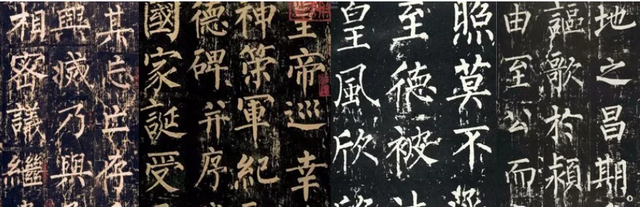 地之昌期
謳歌於潁
由至公而
照莫不
至德被
皇風欣
皇帝巡幸
神策軍紀
德碑并序
國家誕受
其亡亡存
興滅乃與
相容議繼